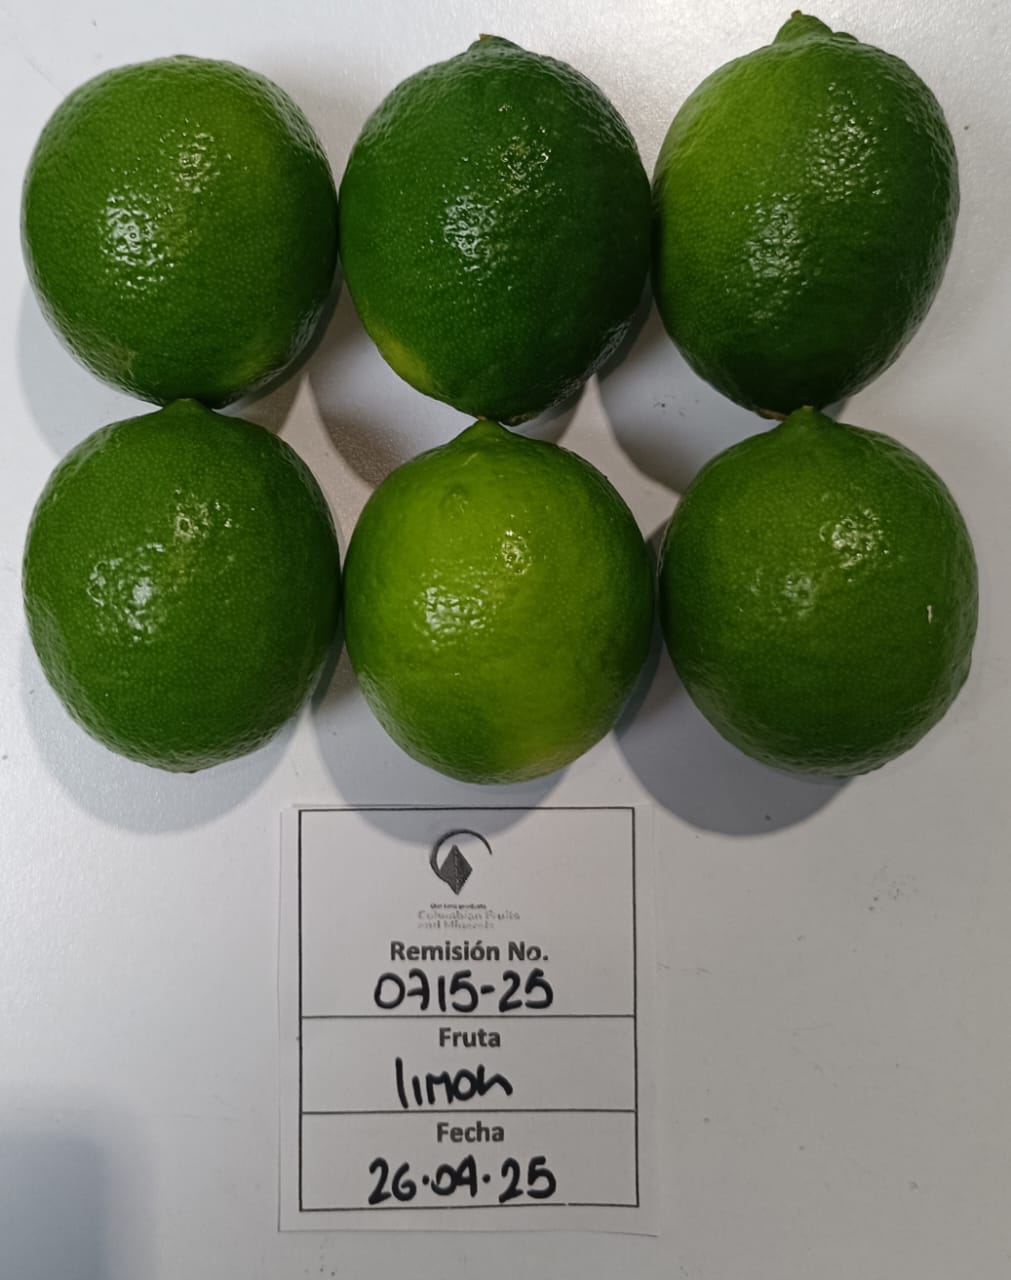 Colombian Fruits
and Minerals
Remisión No.
0715-25
Fruta
limon
Fecha
26.04.25